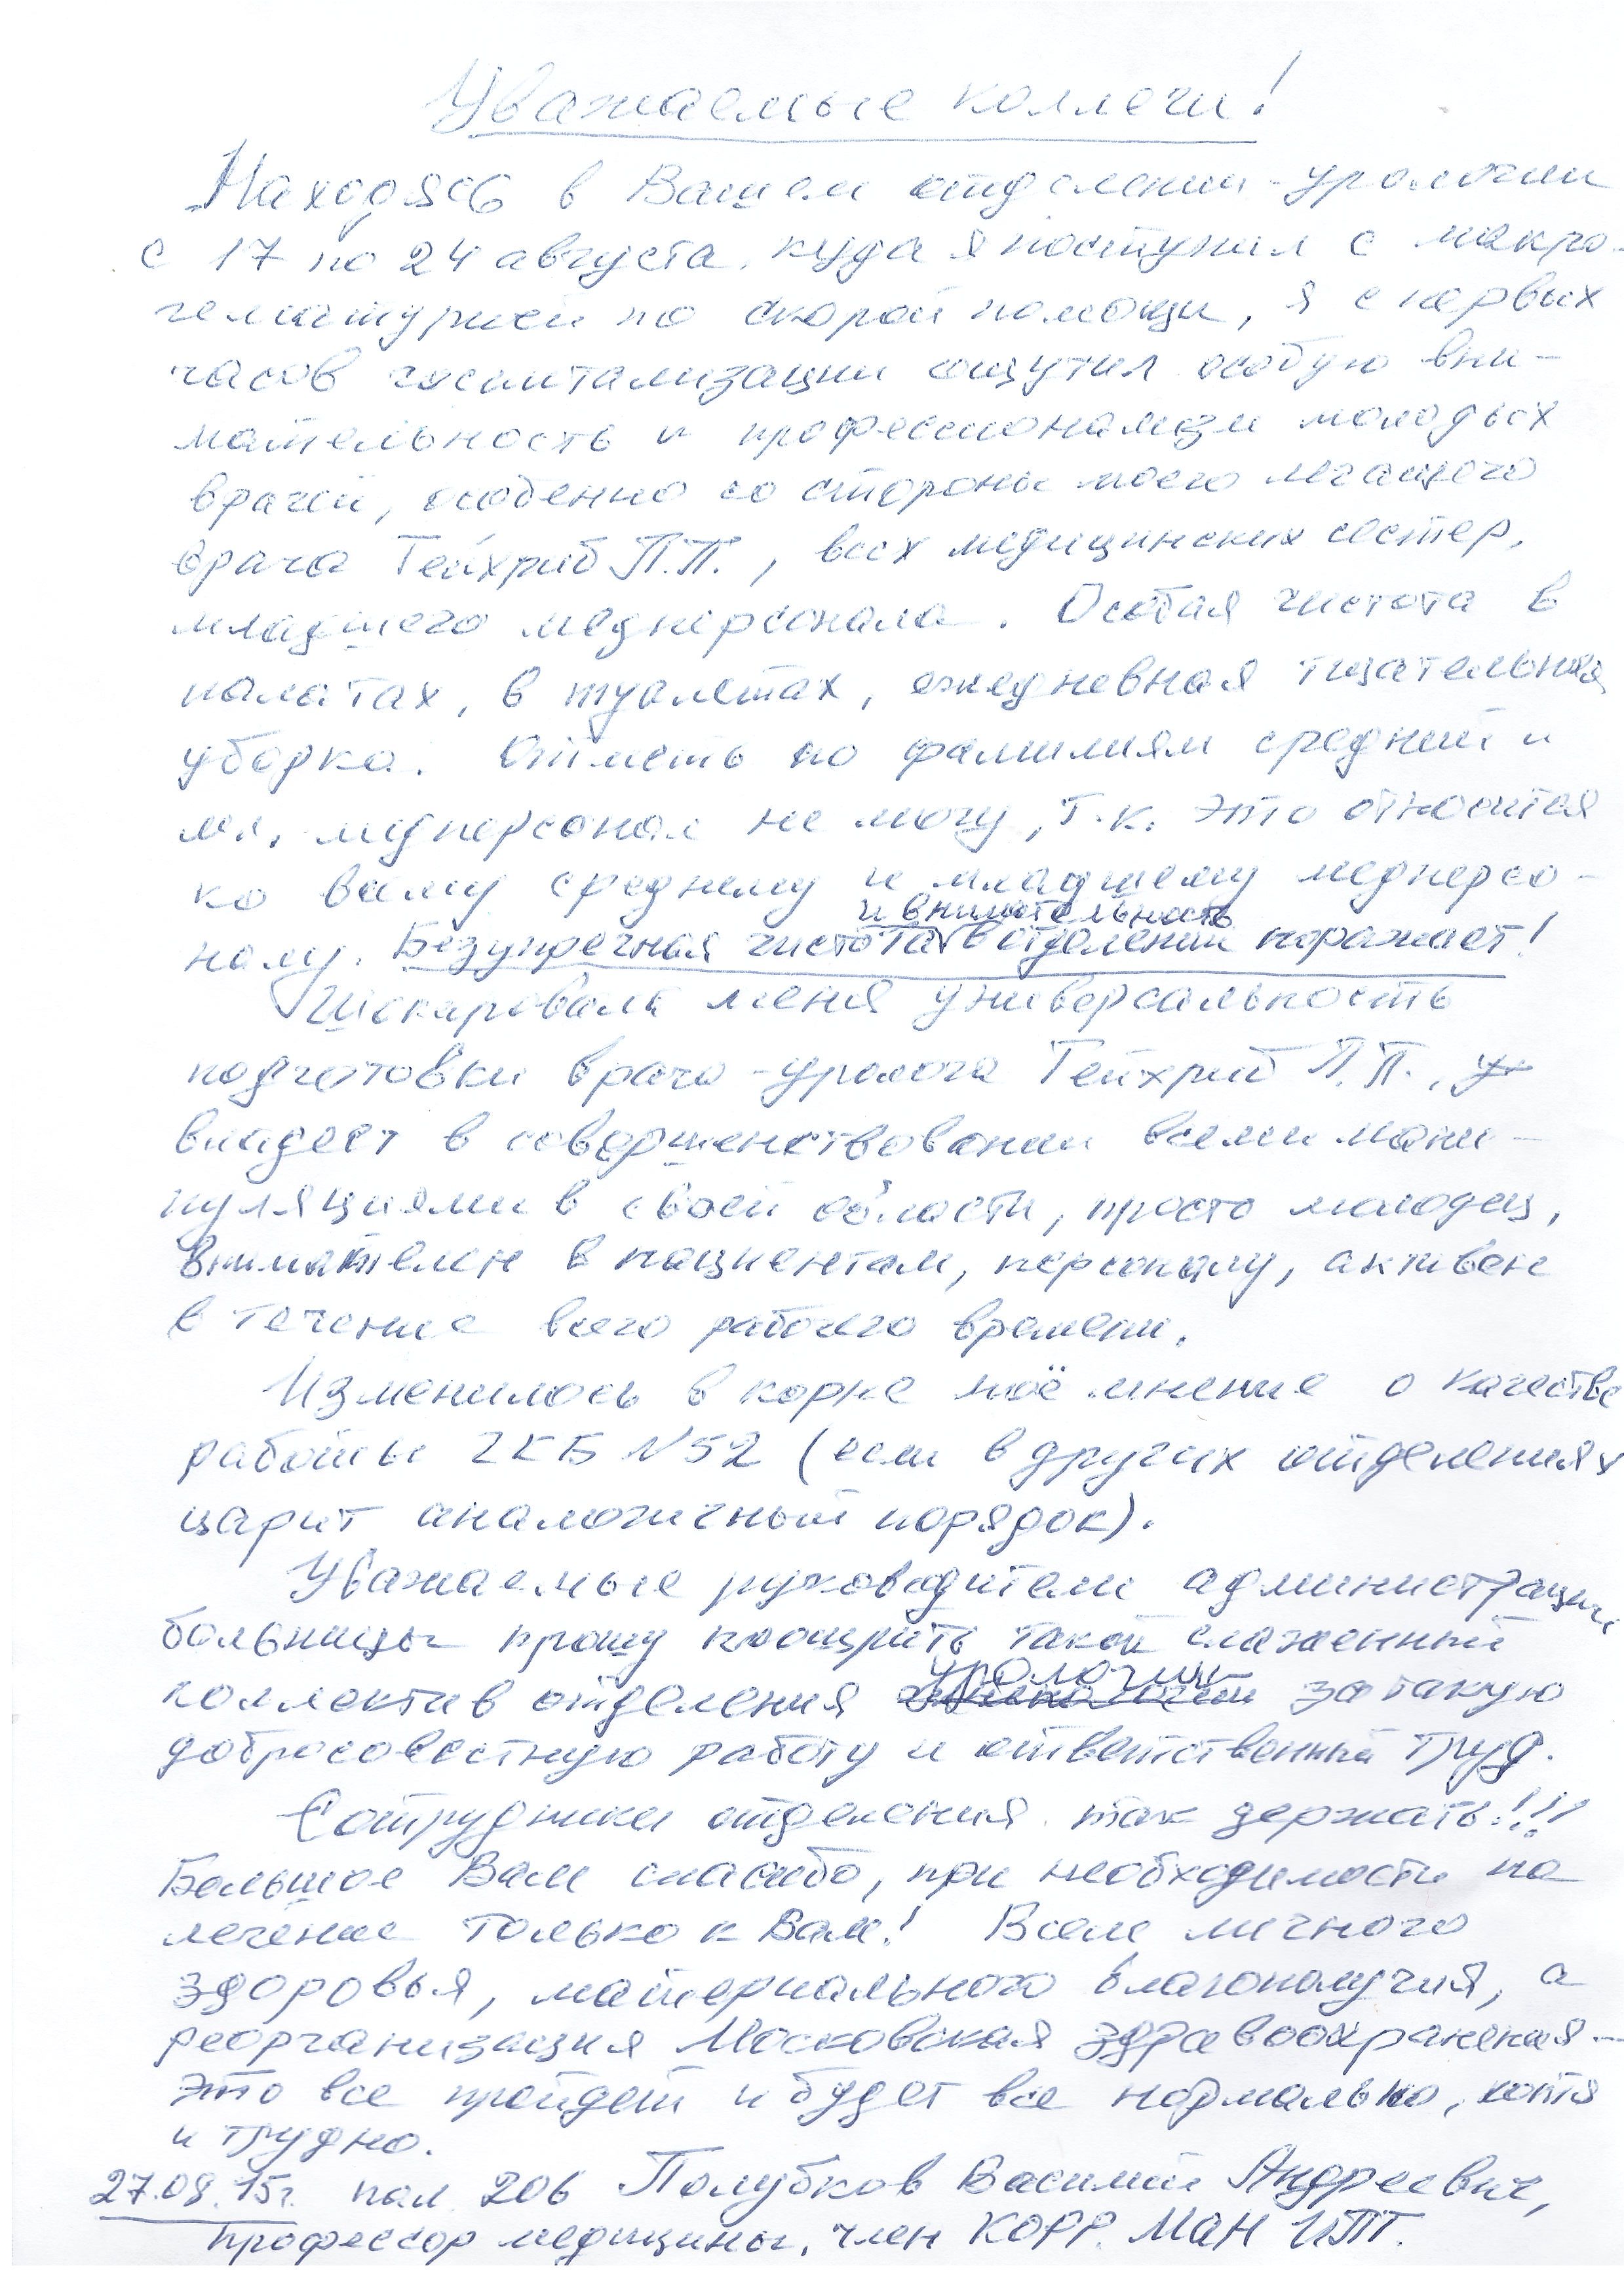 Уважаемые коллеги!
Находясь в Вашем отделении урологии
с 17 по 24 августа, куда я поступил с макро-
гематурией по скорой помощи, я с первых
часов госпитализации ощутил особую вни-
мательность и профессионализм молодых
врачей, особенно со стороны моего лечащего
врача Гейхриб П.П., всех медицинских сестер,
младшего медперсонала. Особая чистота в
палатах, в туалетах, ежедневная тщательная
уборка. Отметь по фамилиям средний и
мл. медперсонал не могу, т.к. это относится
ко всему среднему и младшему медперсо-
налу. Безупречная чистота и внимательность в отделении поражает!
Шокировала меня универсальность
подготовки врача-уролога Гейхриб П.П.,
владеет в совершенствовании всеми мани-
пуляциями в своей области, просто молодец,
внимателен в пациентам, персоналу, активен
в течение всего рабочего времени.
Изменилось в корне моё мнение о качестве
работы ГКБ №52 (если в других отделениях
царит аналогичный порядок).
Уважаемые руководители администрации
больницы прошу поощрить такой слаженный
коллектив отделения урологии за такую
добросовестную работу и ответственный труд.
Сотрудники отделения так держать!!!
Большое Вам спасибо, при необходимости на
лечение только к Вам! Всем личного
здоровья, материального благополучия, а
реорганизация Московская здравоохранения-
это все пройдет и будет все нормально, хотя
и трудно.
27.08.15г. пал 206 Полубков Василий Андреевич,
профессор медицины, член КОРР. МАН ИПТ.